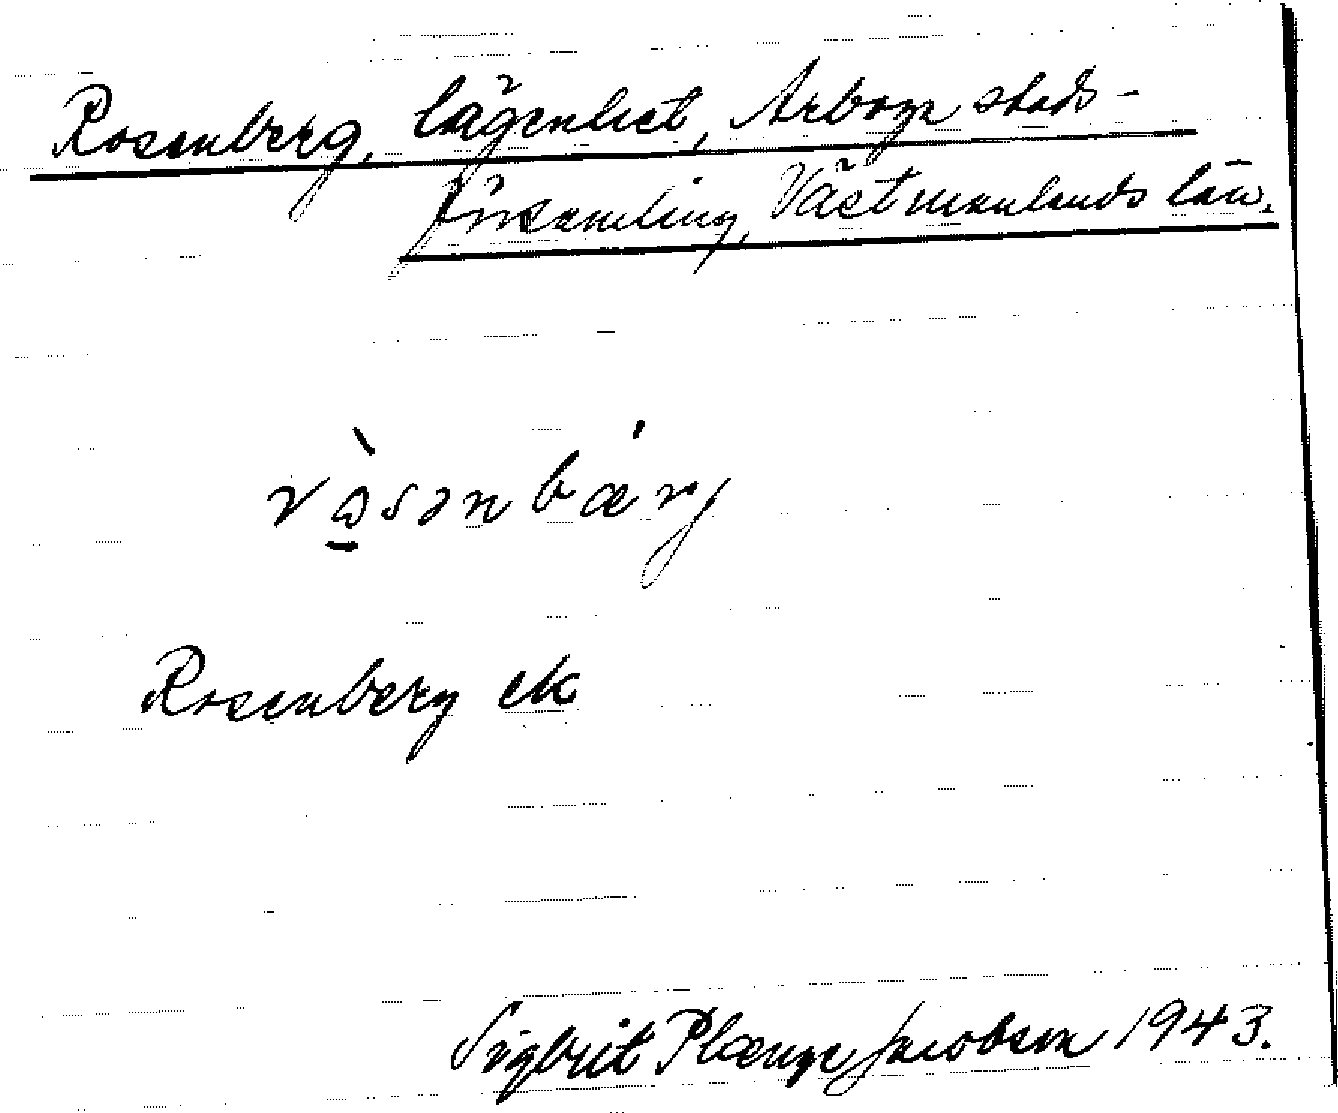 Rosenberg, lägenhet, Arboga stads-
församling, Västmanlands län.
Rosenberg ek
Sigbrit Plænge Jacobson 1943.